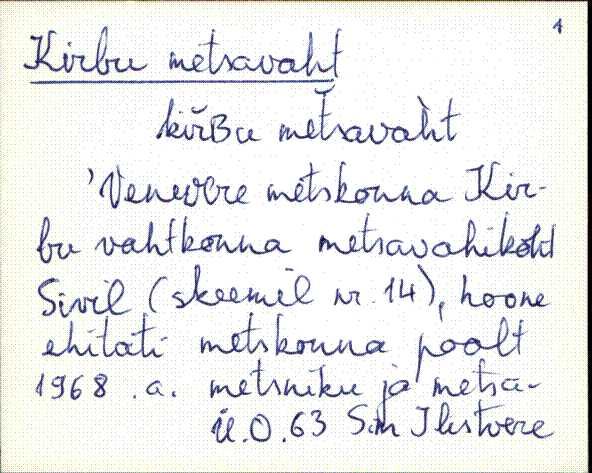 4
Kirbu metsavaht
kiřBu metšavaht
'Venevere metskonna Kir-
bu vahtkonna metsavahikoht
Sivil (skeemil nr. 14), hoone
ehitati metskonna poolt
1968.a. metsniku ja metsa-
Ü.O.63 Sim Ilistvere